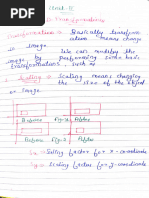 Unit-II
2D Transformations
Transformation = Basically transform
ation means change
in Image. We can modify the
image by performing some basic
transformations such as
Scaling = Scaling means changing
the size of the object
or Image.
Before
After
Before
After
Sx = Scaling factor for x-coordinate
Sy = Scaling factor for y-coordinate